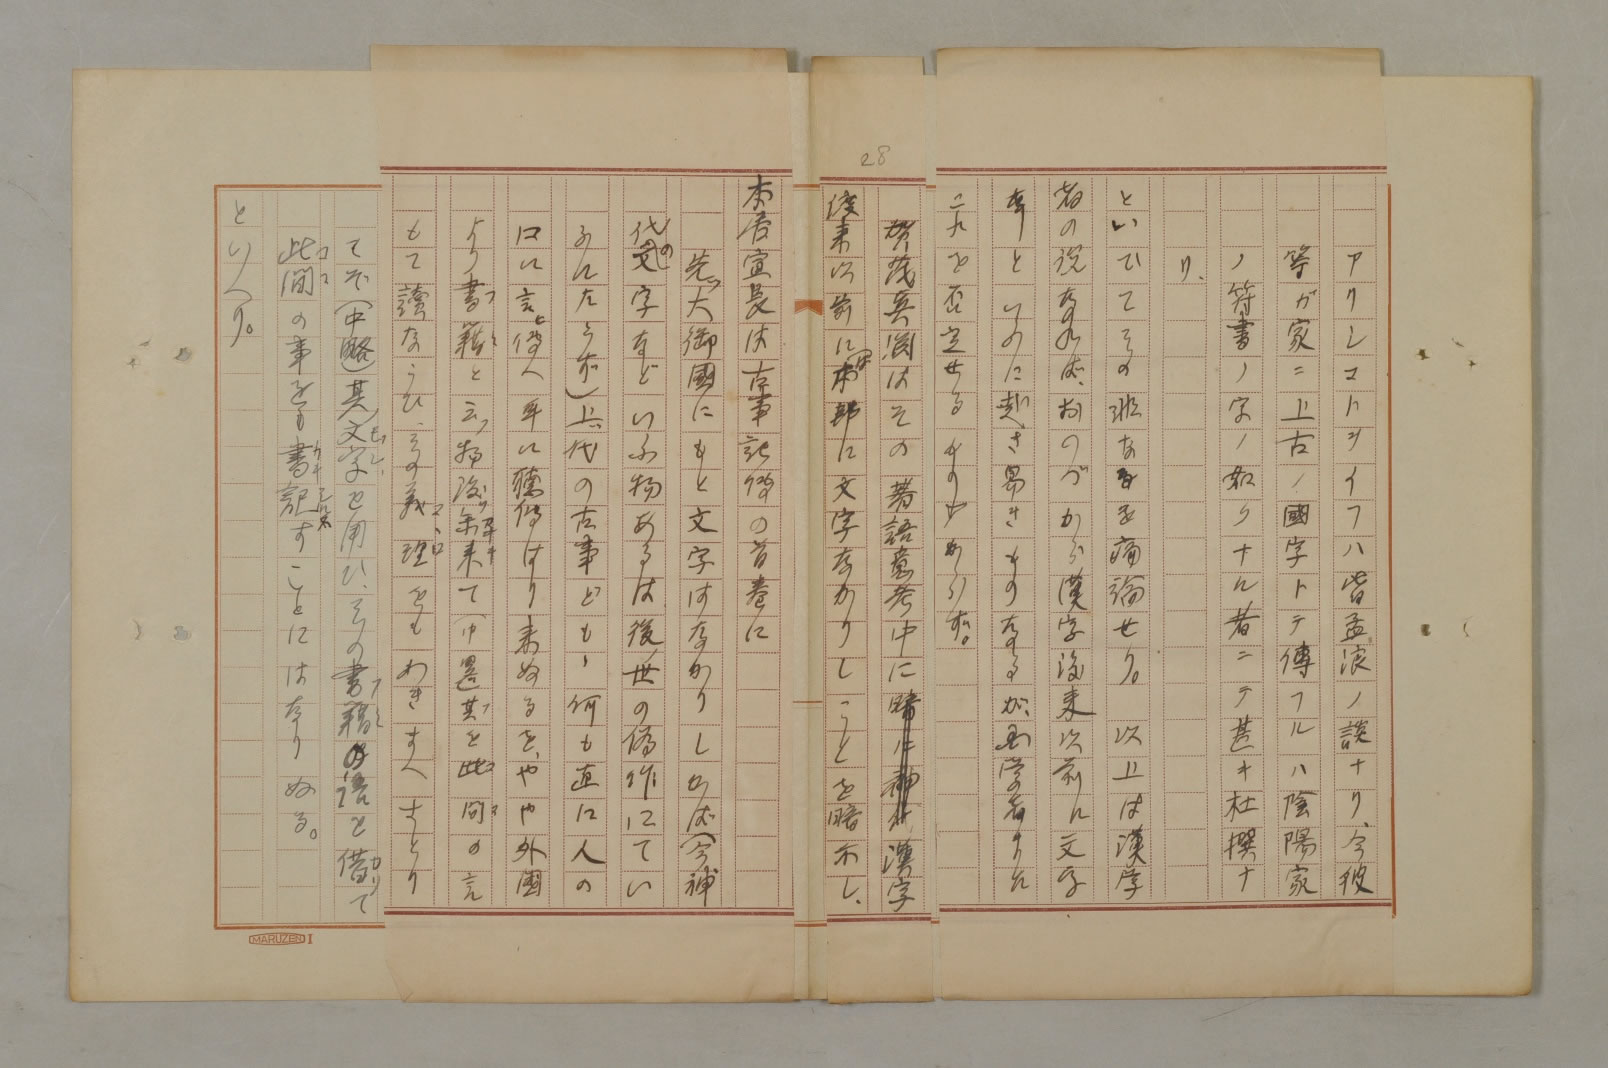 28
アリシコトヲイフハ皆孟浪ノ談ナリ、今彼
等ガ家ニ上古ノ國字トテ傳フルハ陰陽家
ノ符書ノ字ノ如クナル者ニテ甚キ杜撰ナ
リ、
といひてその非なるを痛論せり。以上は漢学
者の説なれば、おのづから漢字渡来以前に文字
無しといふに赴き易きものなるが、国学者また
これを否定せるもの少からず。
賀茂真淵はその著語意考中に漢字
渡来以前には本邦に文字なかりしことを暗示し、
本居宣長は古事記傳の首巻に
先ッ大御國にもと文字はなかりしかば(今神
代の文字などいふ物あるは後ノ世の偽作にてい
ふにたらず)上ッ代の古事ども、何も直に人の
口に言ヒ傳へ耳に聽傳はり来ぬるを、やや外國
より書籍と云フ物渡ッ参来て(中略)其を此間の言
もて讀ならひ、その義理をもわきまへさとり
てぞ(中略)其ノ文字を用ひ、その書籍の語を借て
此間の事をも書記すことにはなりぬる。
といへり。
MARUZEN I